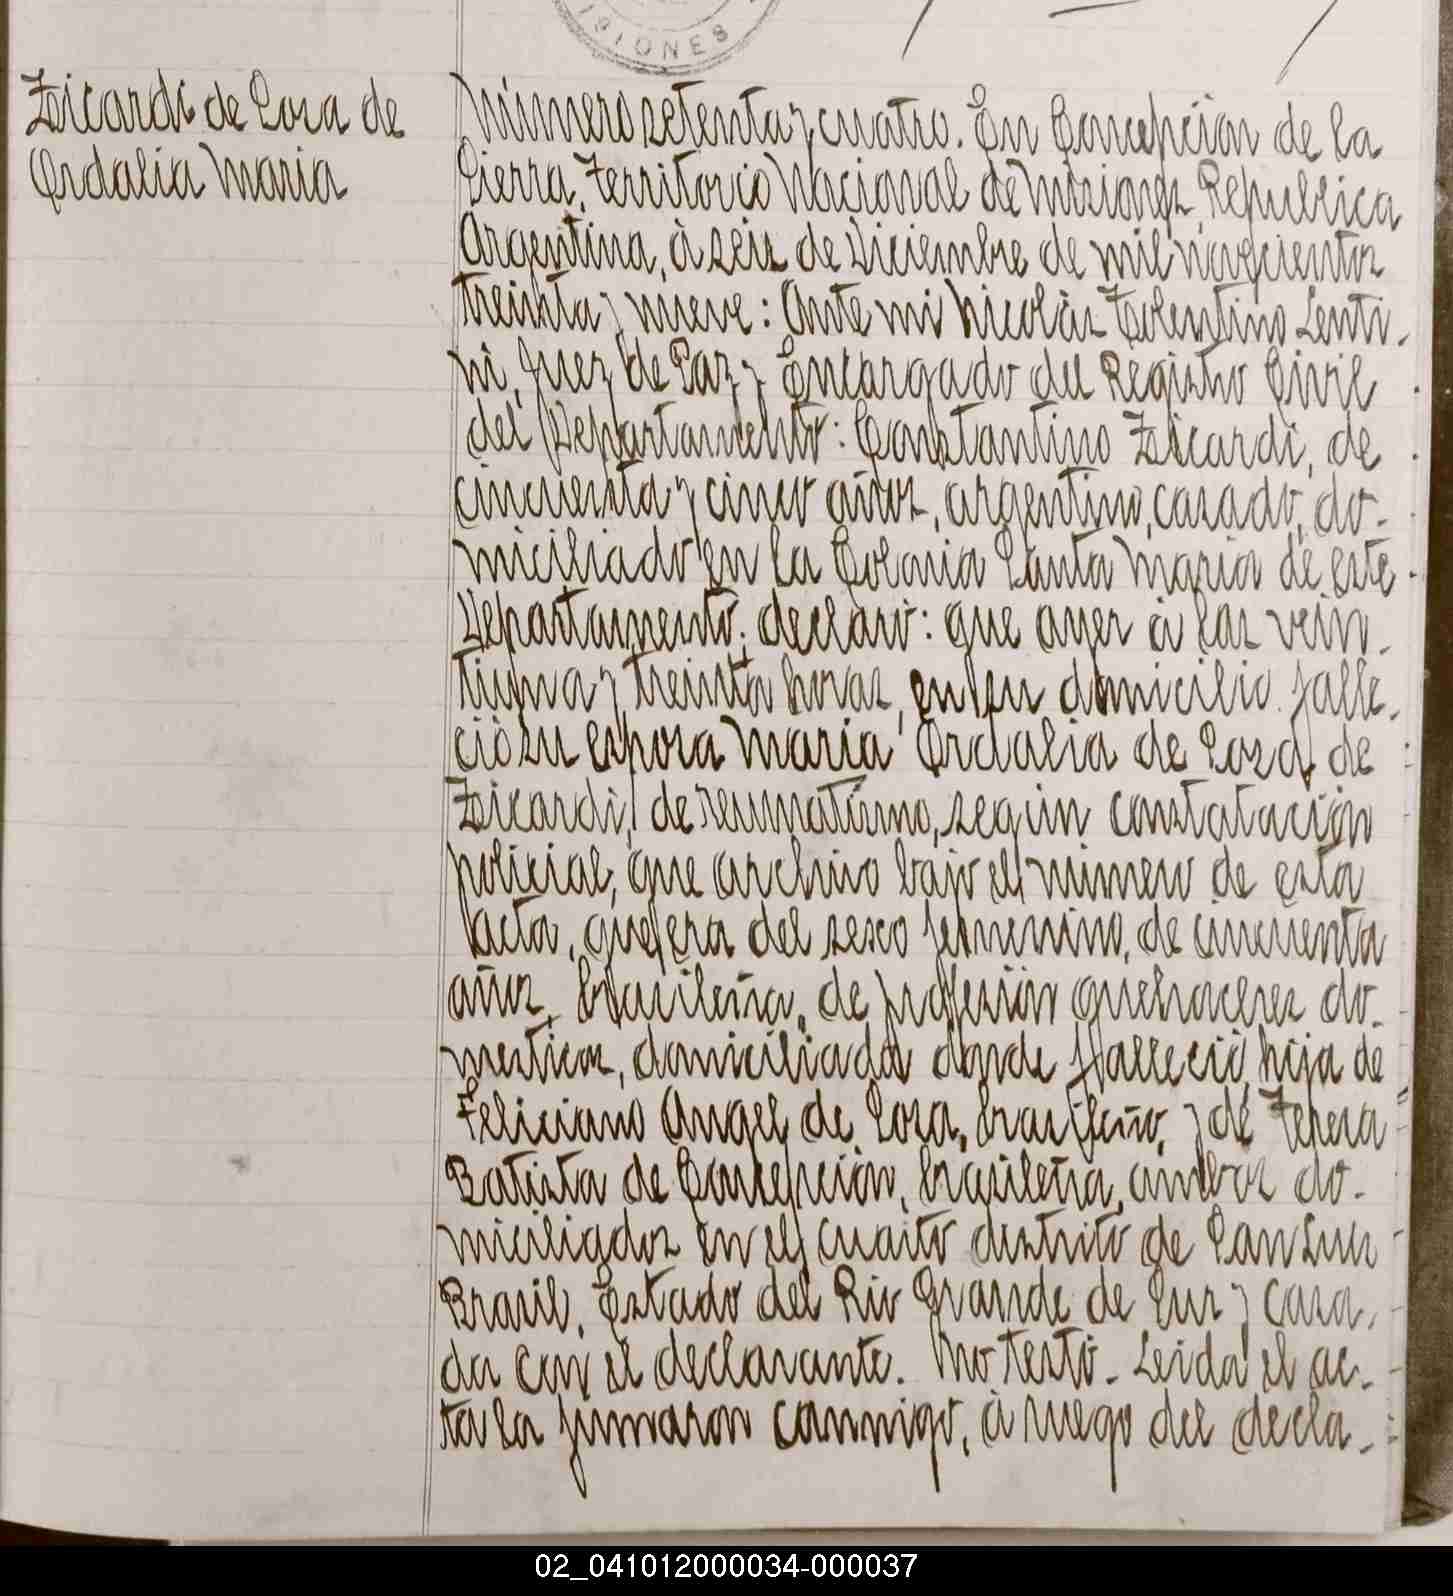 ISIONES
Zicardi de Sosa de
Ordalia Maria
Número setenta y cuatro. En Concepción de la
Sierra, Territorio Nacional de Misiones, Republica
Argentina, à seis de Diciembre de mil novecientos
treinta y nueve: Ante mi Nicolás Tolentino Lenti-
ni, Juez de Paz y Encargado del Registro Civil
del Departamento: Constantino Zicardi, de
cincuenta y cinco años, argentino, casado, do-
miciliado en la Colonia Santa Maria de este
Departamento, declaró: que ayer à las vein-
tiuna y treinta horas, en su domicilio falle-
ció su esposa Maria Ordalia de Sosa de
Zicardi, de reumatismo, según constatación
policial, que archivo bajo el número de esta
acta, que era del sexo femenino, de cincuenta
años, brasileña, de profesión quehaceres do-
mesticos, domiciliada donde falleció, hija de
Feliciano Angel de Sosa, brasileño, y de Teresa
Batista de Concepción, brasileña, ambos do-
miciliados en el cuarto distrito de San Luis
Brasil, Estado del Rio Grande de Sur y casa-
da con el declarante. No testó. Leida el ac-
ta la firmaron conmigo, à ruego del decla-
02_041012000034-000037